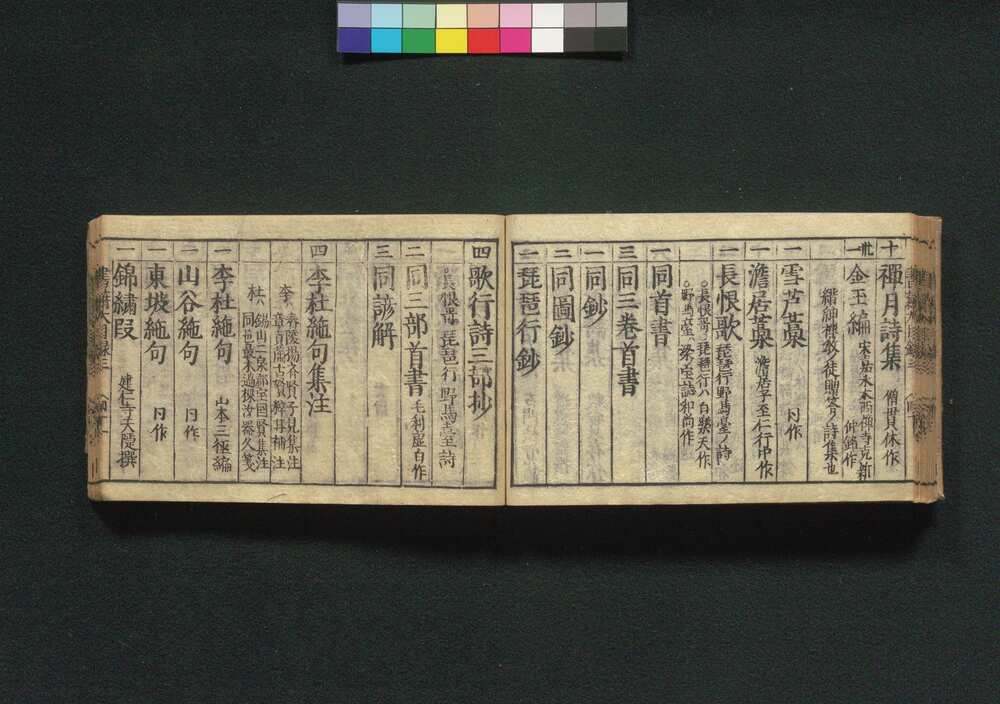 十 禅月詩集 僧貫休作
一 金玉編
緇紳禅教之徒贈答ノ詩集也
一 雪岩藁 同作
一 澹居藁 澹居子至仁行中作
一 長恨歌 琵琶行野馬臺ノ詩
長恨哥琵琶行ハ白樂天作
野馬臺ハ梁宝誌和尚作
一 同首書
三 同三巻首書
一 同鈔
二 同圖鈔
二 琵琶行鈔
四 歌行詩三部抄
長恨哥琵琶行野馬臺詩
二 同三部首書 毛利虚白作
三 同諺解
四 李杜絁句集注
李 舂陵揚齊賢子見集注
章貢蕭士贇粹可補注
杜
一 李杜絁句 山本三徑編
二 山谷絁句 同作
一 東坡絁句 同作
一 錦繡段 建仁寺天隱撰